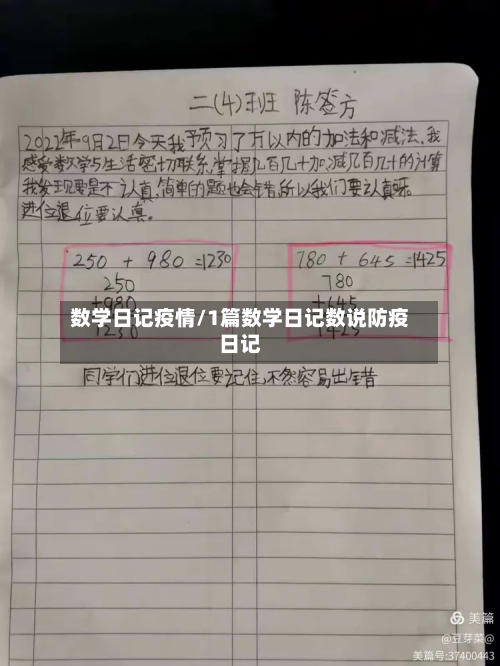 二(4)班 陈签方
2022年9月2日今天我预习了万以内的加法和减法,我
感受数学与生活密切联系,掌握几百几十加减几百几十的计算
我发现要是不认真,简单的题也会错,所以我们要认真呀。
进位退位要认真。
250 + 980 =1230
250
+980
1230
780 + 645 =1425
780
+645
1425
数学日记疫情/1篇数学日记数说防疫
日记
同学们进位退位要记住,不然容易出错
美篇
@豆芽菜@
美篇号:37400443